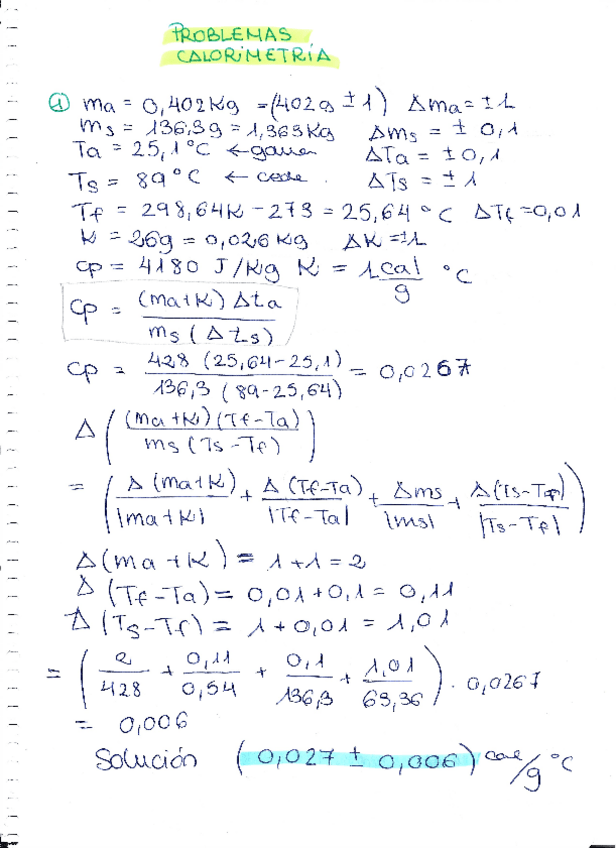 PROBLEMAS
CALORIMETRÍA
① ma = 0,402Kg = (402g ± 1) Δma = ±1
ms = 136,3g = 1,363Kg Δms = ± 0,1
Ta = 25,1 °C ← ganan ΔTa = ±0,1
Ts = 89 °C ← cede. ΔTs = ± 1
Tf = 298,64K - 273 = 25,64 °C ΔTf = 0,01
K = 26g = 0,026 Kg ΔK = ±1
Cp = 4180 J/Kg K = 1 cal/g °C
Cp = (ma+K) Δta / ms (Δts)
Cp = 428 (25,64-25,1) / 136,3 (89-25,64) = 0,0267
Δ ( (ma+K)(Tf-Ta) / ms (Ts-Tf) )
= ( Δ(ma+K) / |ma+K| + Δ(Tf-Ta) / |Tf-Ta| + Δms / |ms| + Δ(Ts-Tf) / |Ts-Tf| )
Δ(ma + K) = 1+1 = 2
Δ (Tf-Ta) = 0,01+0,1 = 0,11
Δ (Ts-Tf) = 1 + 0,01 = 1,01
= ( 2/428 + 0,11/0,54 + 0,1/136,3 + 1,01/63,36 ) · 0,0267
= 0,006
Solución (0,027 ± 0,006) cal/g °C